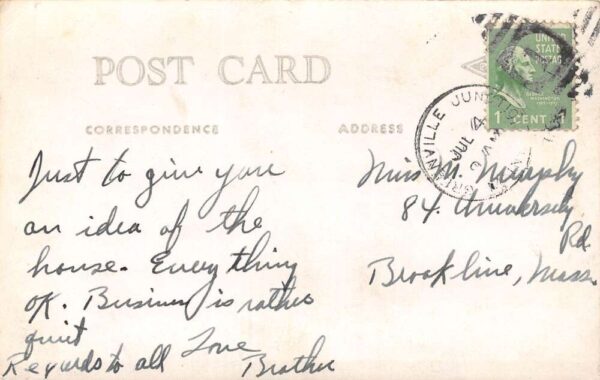 POST CARD
CORRESPONDENCE
ADDRESS
UNITED
STATES
POSTAGE
1 CENT 1
JUL 4
Just to give you
an idea of the
house. Everything
OK. Business is rather
quiet
Regards to all Love
Brother
Miss M. Murphy
84 University
Rd.
Brookline, Mass.